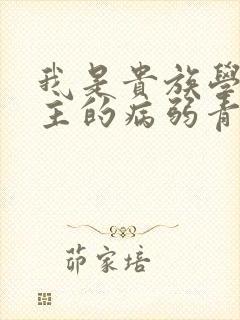 我是貴族學
主的病弱青
茆家培